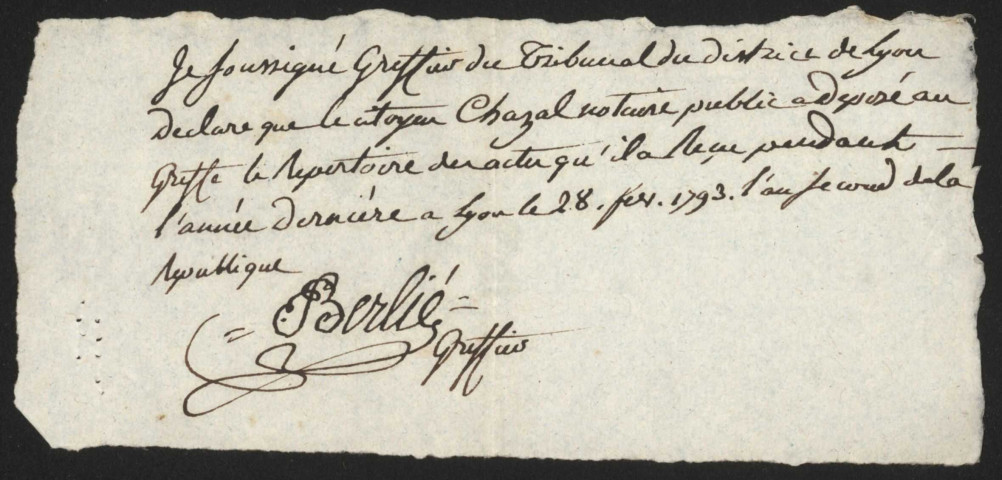 Je soussigné Greffier du Tribunal du district de Lyon
declare que le citoyen Chazal notaire public a deposé au
Greffe le Repertoire des actes qu'il a Reçu pendant
l'année derniére a Lyon le 28. fev. 1793. l'an second de la
Republique
= Berlié =
Greffier